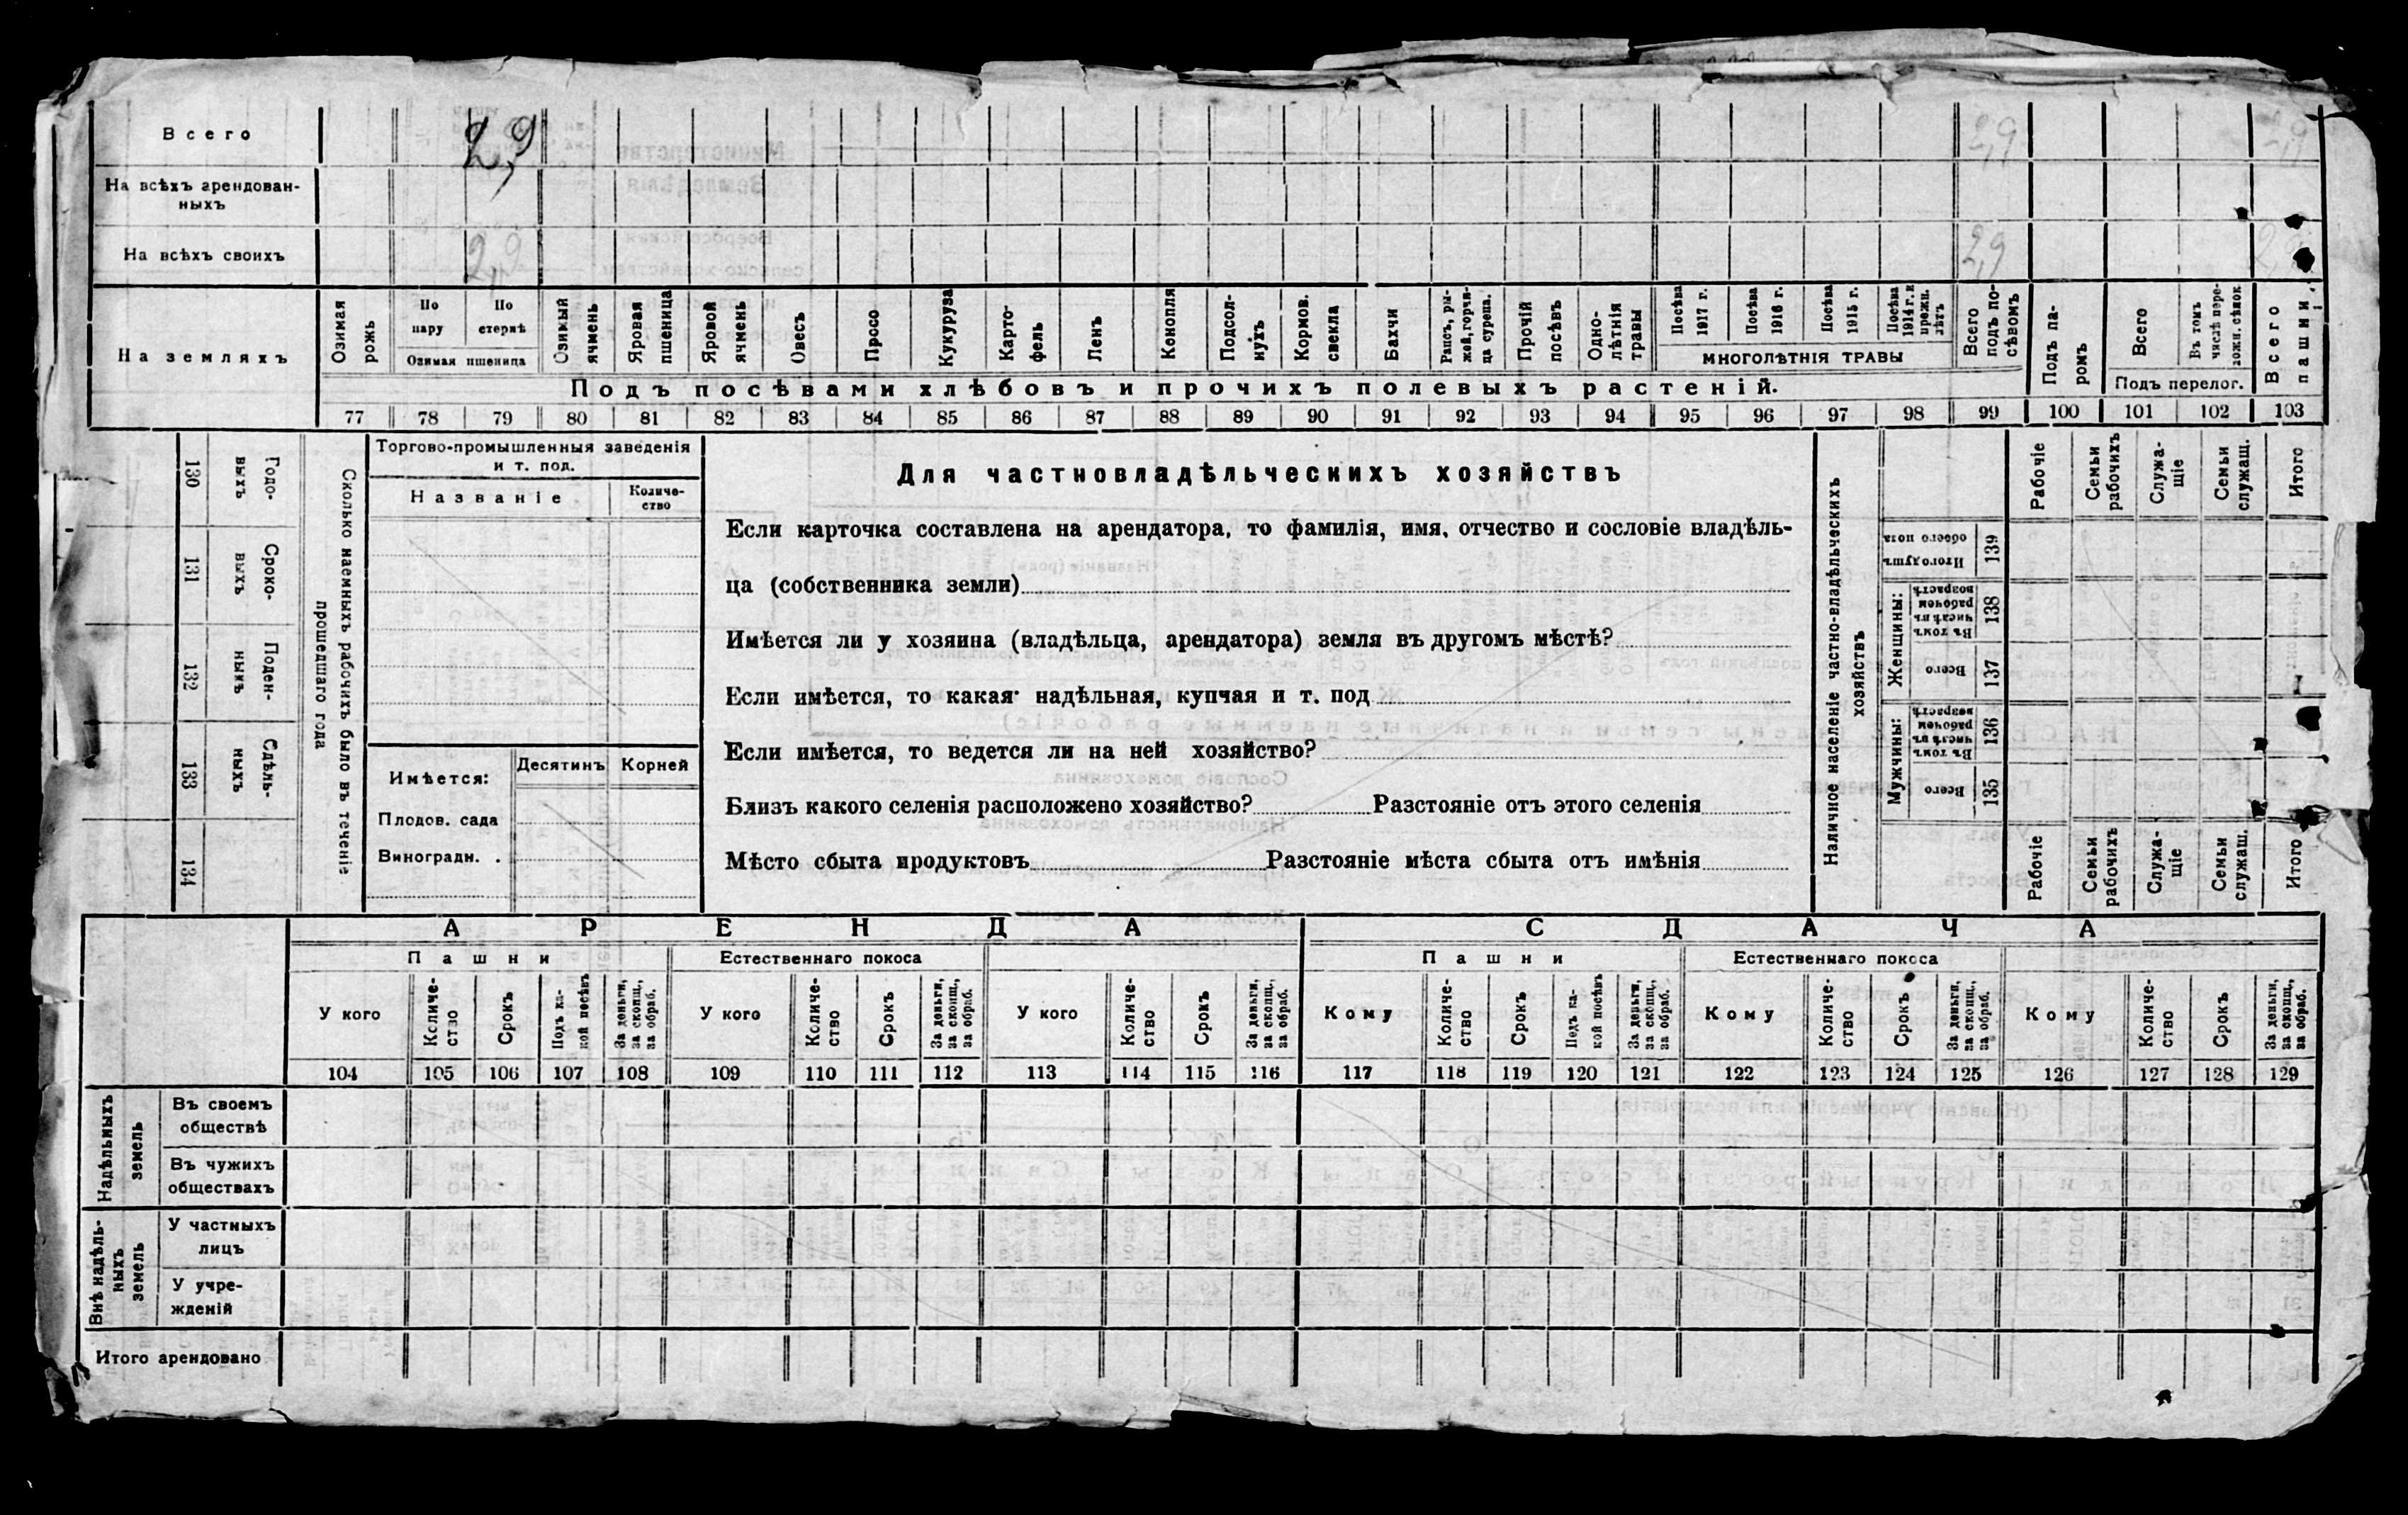 Всего 2,9 2,9 2,9
На всѣхъ арендован-
ныхъ
На всѣхъ своихъ 2,9 2,9
На земляхъ
Озимая рожь
По пару
По стернѣ
Озимая пшеница
Озимый ячмень
Яровая пшеница
Яровой ячмень
Овесъ
Просо
Кукуруза
Карто-
фель
Ленъ
Конопля
Подсол-
нухъ
Кормов.
свекла
Бахчи
Рапсъ, ры-
жей, горчи-
ца сурепа.
Прочій
посѣвъ
Одно-
лѣтнія
травы
Посѣва
1917 г.
Посѣва
1916 г.
Посѣва
1915 г.
Посѣва
1914 г. и
прежн.
лѣтъ
МНОГОЛѢТНІЯ ТРАВЫ
Всего
подъ по-
сѣвомъ
Подъ па-
ромъ
Всего
Въ томъ
числѣ пере-
ложн. сѣнок
Подъ перелог.
Всего
пашни
Подъ посѣвами хлѣбовъ и прочихъ полевыхъ растеній.
77 78 79 80 81 82 83 84 85 86 87 88 89 90 91 92 93 94 95 96 97 98 99 100 101 102 103
Сколько наемныхъ рабочихъ было въ теченіе
прошедшаго года
Годо-
выхъ
130
Сроко-
выхъ
131
Поден-
ныхъ
132
Сдѣль-
ныхъ
133
134
Торгово-промышленныя заведенія
и т. под.
Названіе
Количе-
ство
Имѣется:
Десятинъ
Корней
Плодов. сада
Виноградн. .
Для частновладѣльческихъ хозяйствъ
Если карточка составлена на арендатора, то фамилія, имя, отчество и сословіе владѣль-
ца (собственника земли)
Имѣется ли у хозяина (владѣльца, арендатора) земля въ другомъ мѣстѣ?
Если имѣется, то какая· надѣльная, купчая и т. под
Если имѣется, то ведется ли на ней хозяйство?
Близъ какого селенія расположено хозяйство? Разстояніе отъ этого селенія
Мѣсто сбыта продуктовъ Разстояніе мѣста сбыта отъ имѣнія
Наличное населеніе частно-владѣльческихъ
хозяйствъ
Рабочіе
Семьи
рабочихъ
Служа-
щіе
Семьи
служащ.
Итого
Итого душъ
обоего пола
139
Женщины:
Въ томъ
числѣ въ
рабочем
возрастѣ
138
Всего
137
Мужчины:
Въ томъ
числѣ въ
рабочем
возрастѣ
136
Всего
135
Рабочіе
Семьи
рабочихъ
Служа-
щіе
Семьи
служащ.
Итого
АРЕНДА
СДАЧА
Пашни
Естественнаго покоса
Пашни
Естественнаго покоса
У кого
Количе-
ство
Срокъ
Подъ ка-
кой посѣвъ
За деньги,
за скопщ.,
за обраб.
У кого
Количе-
ство
Срокъ
За деньги,
за скопщ.,
за обраб.
У кого
Количе-
ство
Срокъ
За деньги,
за скопщ.,
за обраб.
Кому
Количе-
ство
Срокъ
Подъ ка-
кой посѣвъ
За деньги,
за скопщ.,
за обраб.
Кому
Количе-
ство
Срокъ
За деньги,
за скопщ.,
за обраб.
Кому
Количе-
ство
Срокъ
За деньги,
за скопщ.,
за обраб.
104 105 106 107 108 109 110 111 112 113 114 115 116 117 118 119 120 121 122 123 124 125 126 127 128 129
Надѣльныхъ
земель
Въ своемъ
обществѣ
Въ чужихъ
обществахъ
Внѣ надѣль-
ныхъ
земель
У частныхъ
лицъ
У учре-
жденій
Итого арендовано